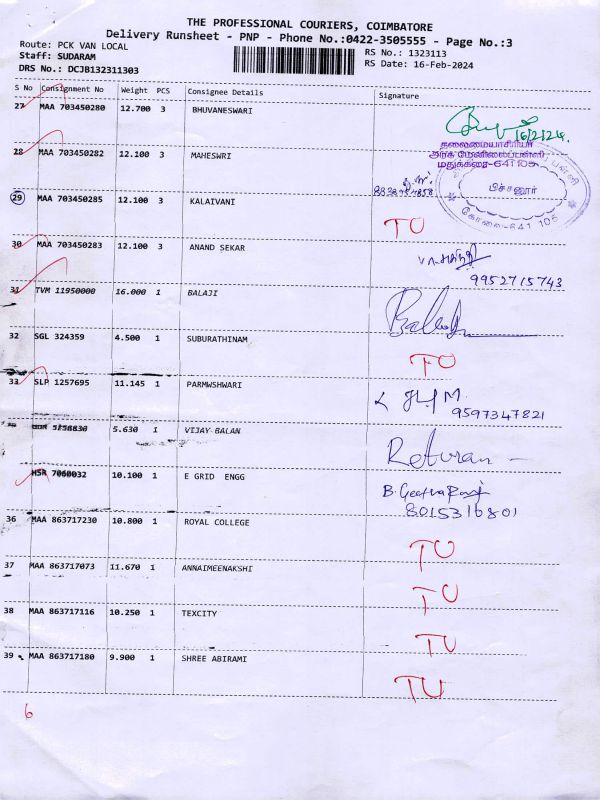 THE PROFESSIONAL COURIERS, COIMBATORE
Delivery Runsheet - PNP - Phone No.:0422-3505555 - Page No.:3
Route: PCK VAN LOCAL RS No.: 1323113
Staff: SUDARAM RS Date: 16-Feb-2024
DRS No.: DCJB132311303
S No Consignment No Weight PCS Consignee Details Signature
27 MAA 703450280 12.700 3 BHUVANESWARI
16/2/24
தலைமையாசிரியர்
அரசு மேனிலைப்பள்ளி
மதுக்கரை-641105
பிச்சனூர்
கோவை-641 105
28 MAA 703450282 12.100 3 MAHESWRI
29 MAA 703450285 12.100 3 KALAIVANI TO
30 MAA 703450283 12.100 3 ANAND SEKAR
9952715743
31 TVM 11950000 16.000 1 BALAJI
32 SGL 324359 4.500 1 SUBURATHINAM TO
33 SLP 1257695 11.145 1 PARMWSHWARI
9597347821
5.630 1 VIJAY BALAN Returan
HSR 7060032 10.100 1 E GRID ENGG
8015316801
36 MAA 863717230 10.800 1 ROYAL COLLEGE TU
37 MAA 863717073 11.670 1 ANNAIMEENAKSHI TU
38 MAA 863717116 10.250 1 TEXCITY TU
39 MAA 863717180 9.900 1 SHREE ABIRAMI TU
6